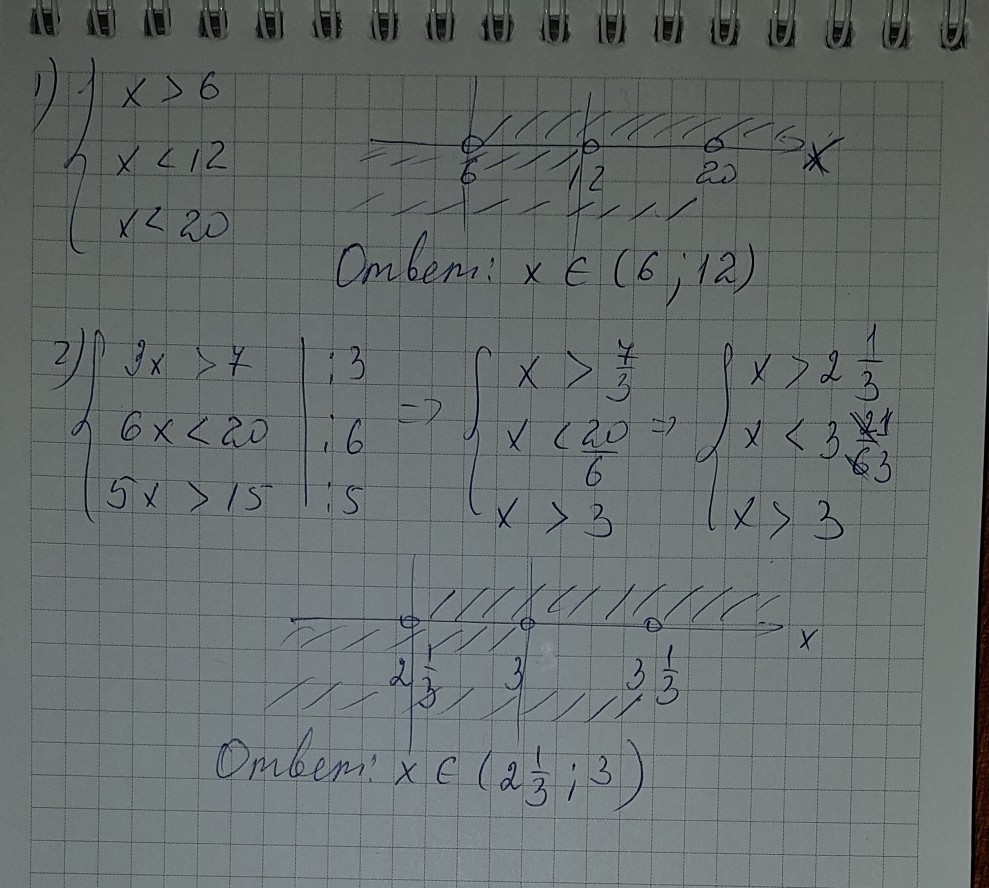 1) { x > 6
x < 12
x < 20
6 12 20 x
Ответ: x ∈ (6 ; 12)
2) { 3x > 7 | : 3
6x < 20 | : 6
5x > 15 | : 5
=> { x > 7/3
x < 20/6
x > 3
=> { x > 2 1/3
x < 3 1/3
x > 3
2 1/3 3 3 1/3 x
Ответ: x ∈ (2 1/3 ; 3)